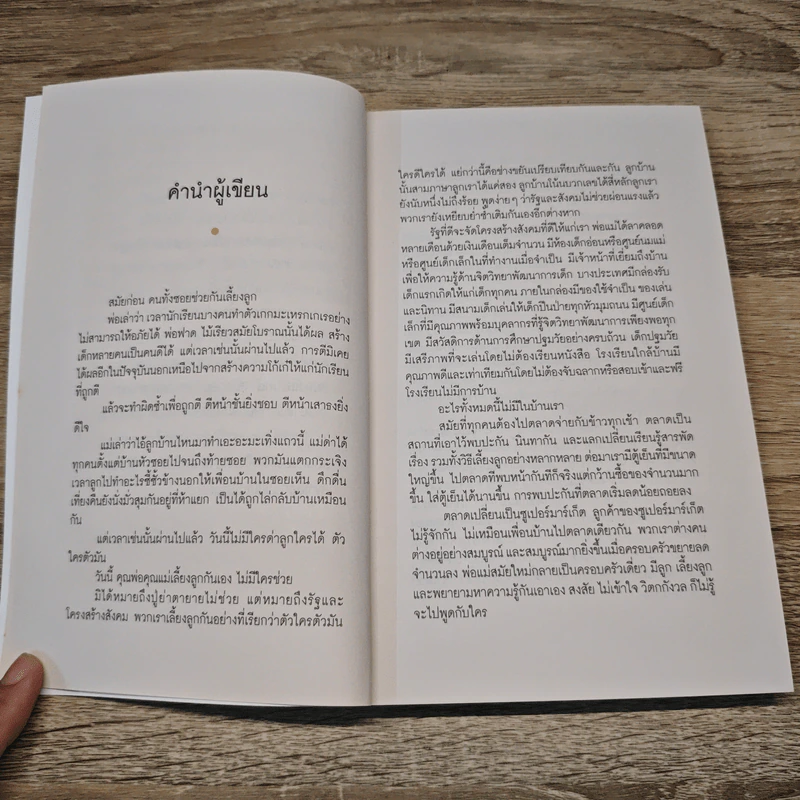 คำนำผู้เขียน
สมัยก่อน คนทั้งซอยช่วยกันเลี้ยงลูก
พ่อเล่าว่า เวลานักเรียนบางคนทำตัวเกกมะเหรกเกเรอย่าง
ไม่สามารถให้อภัยได้ พ่อฟาด ไม้เรียวสมัยโบราณนั้นได้ผล สร้าง
เด็กหลายคนเป็นคนดีได้ แต่เวลาเช่นนั้นผ่านไปแล้ว การตีมิเคย
ได้ผลอีกในปัจจุบันนอกเหนือไปจากสร้างความโก้เก๋ให้แก่นักเรียน
ที่ถูกตี
แล้วจะทำผิดซ้ำเพื่อถูกตี ตีหน้าชั้นยิ่งชอบ ตีหน้าเสาธงยิ่ง
ดีใจ
แม่เล่าว่าไอ้ลูกบ้านไหนมาทำเอะอะมะเทิ่งแถวนี้ แม่ด่าได้
ทุกคนตั้งแต่บ้านหัวซอยไปจนถึงท้ายซอย พวกมันแตกกระเจิง
เวลาลูกไปทำอะไรชี้ชั้วข้างนอกให้เพื่อนบ้านในซอยเห็น ดึกดื่น
เที่ยงคืนยังนั่งมั่วสุมกันอยู่ที่ท้ายแยก เป็นได้ถูกไล่กลับบ้านเหมือน
กัน
แต่เวลาเช่นนั้นผ่านไปแล้ว วันนี้ไม่มีใครด่าลูกใครได้ ตัว
ใครตัวมัน
วันนี้ คุณพ่อคุณแม่เลี้ยงลูกกันเอง ไม่มีใครช่วย
มิได้หมายถึงปู่ย่าตายายไม่ช่วย แต่หมายถึงรัฐและ
โครงสร้างสังคม พวกเราเลี้ยงลูกกันอย่างที่เรียกว่าตัวใครตัวมัน
ใครดีใครได้ แย่กว่านี้คือช่างขยันเปรียบเทียบกันและกัน ลูกบ้าน
นั้นสามภาษาลูกเราได้แค่สอง ลูกบ้านโน้นบวกเลขได้สี่หลักลูกเรา
ยังนับหนึ่งไม่ถึงร้อย พูดง่ายๆ ว่ารัฐและสังคมไม่ช่วยผ่อนแรงแล้ว
พวกเรายังเหยียบย่ำซ้ำเติมกันเองอีกต่างหาก
รัฐที่ดีจะจัดโครงสร้างสังคมที่ดีให้แก่เรา พ่อแม่ได้ลาคลอด
หลายเดือนด้วยเงินเดือนเต็มจำนวน มีห้องเด็กอ่อนหรือศูนย์นมแม่
หรือศูนย์เด็กเล็กในที่ทำงานเมื่อจำเป็น มีเจ้าหน้าที่เยี่ยมถึงบ้าน
เพื่อให้ความรู้ด้านจิตวิทยาพัฒนาการเด็ก บางประเทศมีกล่องรับ
เด็กแรกเกิดให้แก่เด็กทุกคน ภายในกล่องมีของใช้จำเป็น ของเล่น
และนิทาน มีสนามเด็กเล่นให้เด็กปีนป่ายทุกหัวมุมถนน มีศูนย์เด็ก
เล็กที่มีคุณภาพพร้อมบุคลากรที่รู้จิตวิทยาพัฒนาการเพียงพอทุก
เขต มีสวัสดิการด้านการศึกษาปฐมวัยอย่างครบถ้วน เด็กปฐมวัย
มีเสรีภาพที่จะเล่นโดยไม่ต้องเรียนหนังสือ โรงเรียนใกล้บ้านมี
คุณภาพดีและเท่าเทียมกันโดยไม่ต้องจับฉลากหรือสอบเข้าและฟรี
โรงเรียนไม่มีการบ้าน
อะไรทั้งหมดนี้ไม่มีในบ้านเรา
สมัยที่ทุกคนต้องไปตลาดจ่ายกับข้าวทุกเช้า ตลาดเป็น
สถานที่เอาไว้พบปะกัน นินทากัน และแลกเปลี่ยนเรียนรู้สารพัด
เรื่อง รวมทั้งวิธีเลี้ยงลูกอย่างหลากหลาย ต่อมาเรามีตู้เย็นที่มีขนาด
ใหญ่ขึ้น ไปตลาดทีพบหน้ากันทีก็จริงแต่กว้านซื้อของจำนวนมาก
ขึ้น ใส่ตู้เย็นได้นานขึ้น การพบปะกันที่ตลาดเริ่มลดน้อยถอยลง
ตลาดเปลี่ยนเป็นซูเปอร์มาร์เก็ต ลูกค้าของซูเปอร์มาร์เก็ต
ไม่รู้จักกัน ไม่เหมือนเพื่อนบ้านไปตลาดเดียวกัน พวกเราต่างคน
ต่างอยู่อย่างสมบูรณ์ และสมบูรณ์มากยิ่งขึ้นเมื่อครอบครัวขยายลด
จำนวนลง พ่อแม่สมัยใหม่กลายเป็นครอบครัวเดี่ยว มีลูก เลี้ยงลูก
และพยายามหาความรู้กันเอาเอง สงสัย ไม่เข้าใจ วิตกกังวล ก็ไม่รู้
จะไปพูดกับใคร